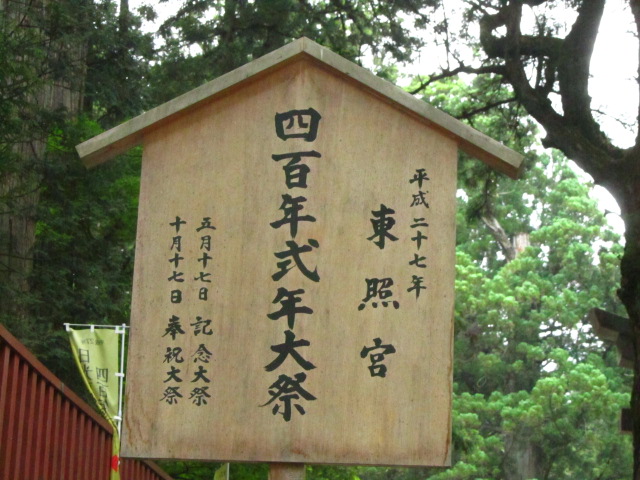 平成二十七年
東照宮
四百年式年大祭
五月十七日 記念大祭
十月十七日 奉祝大祭
四百
日光